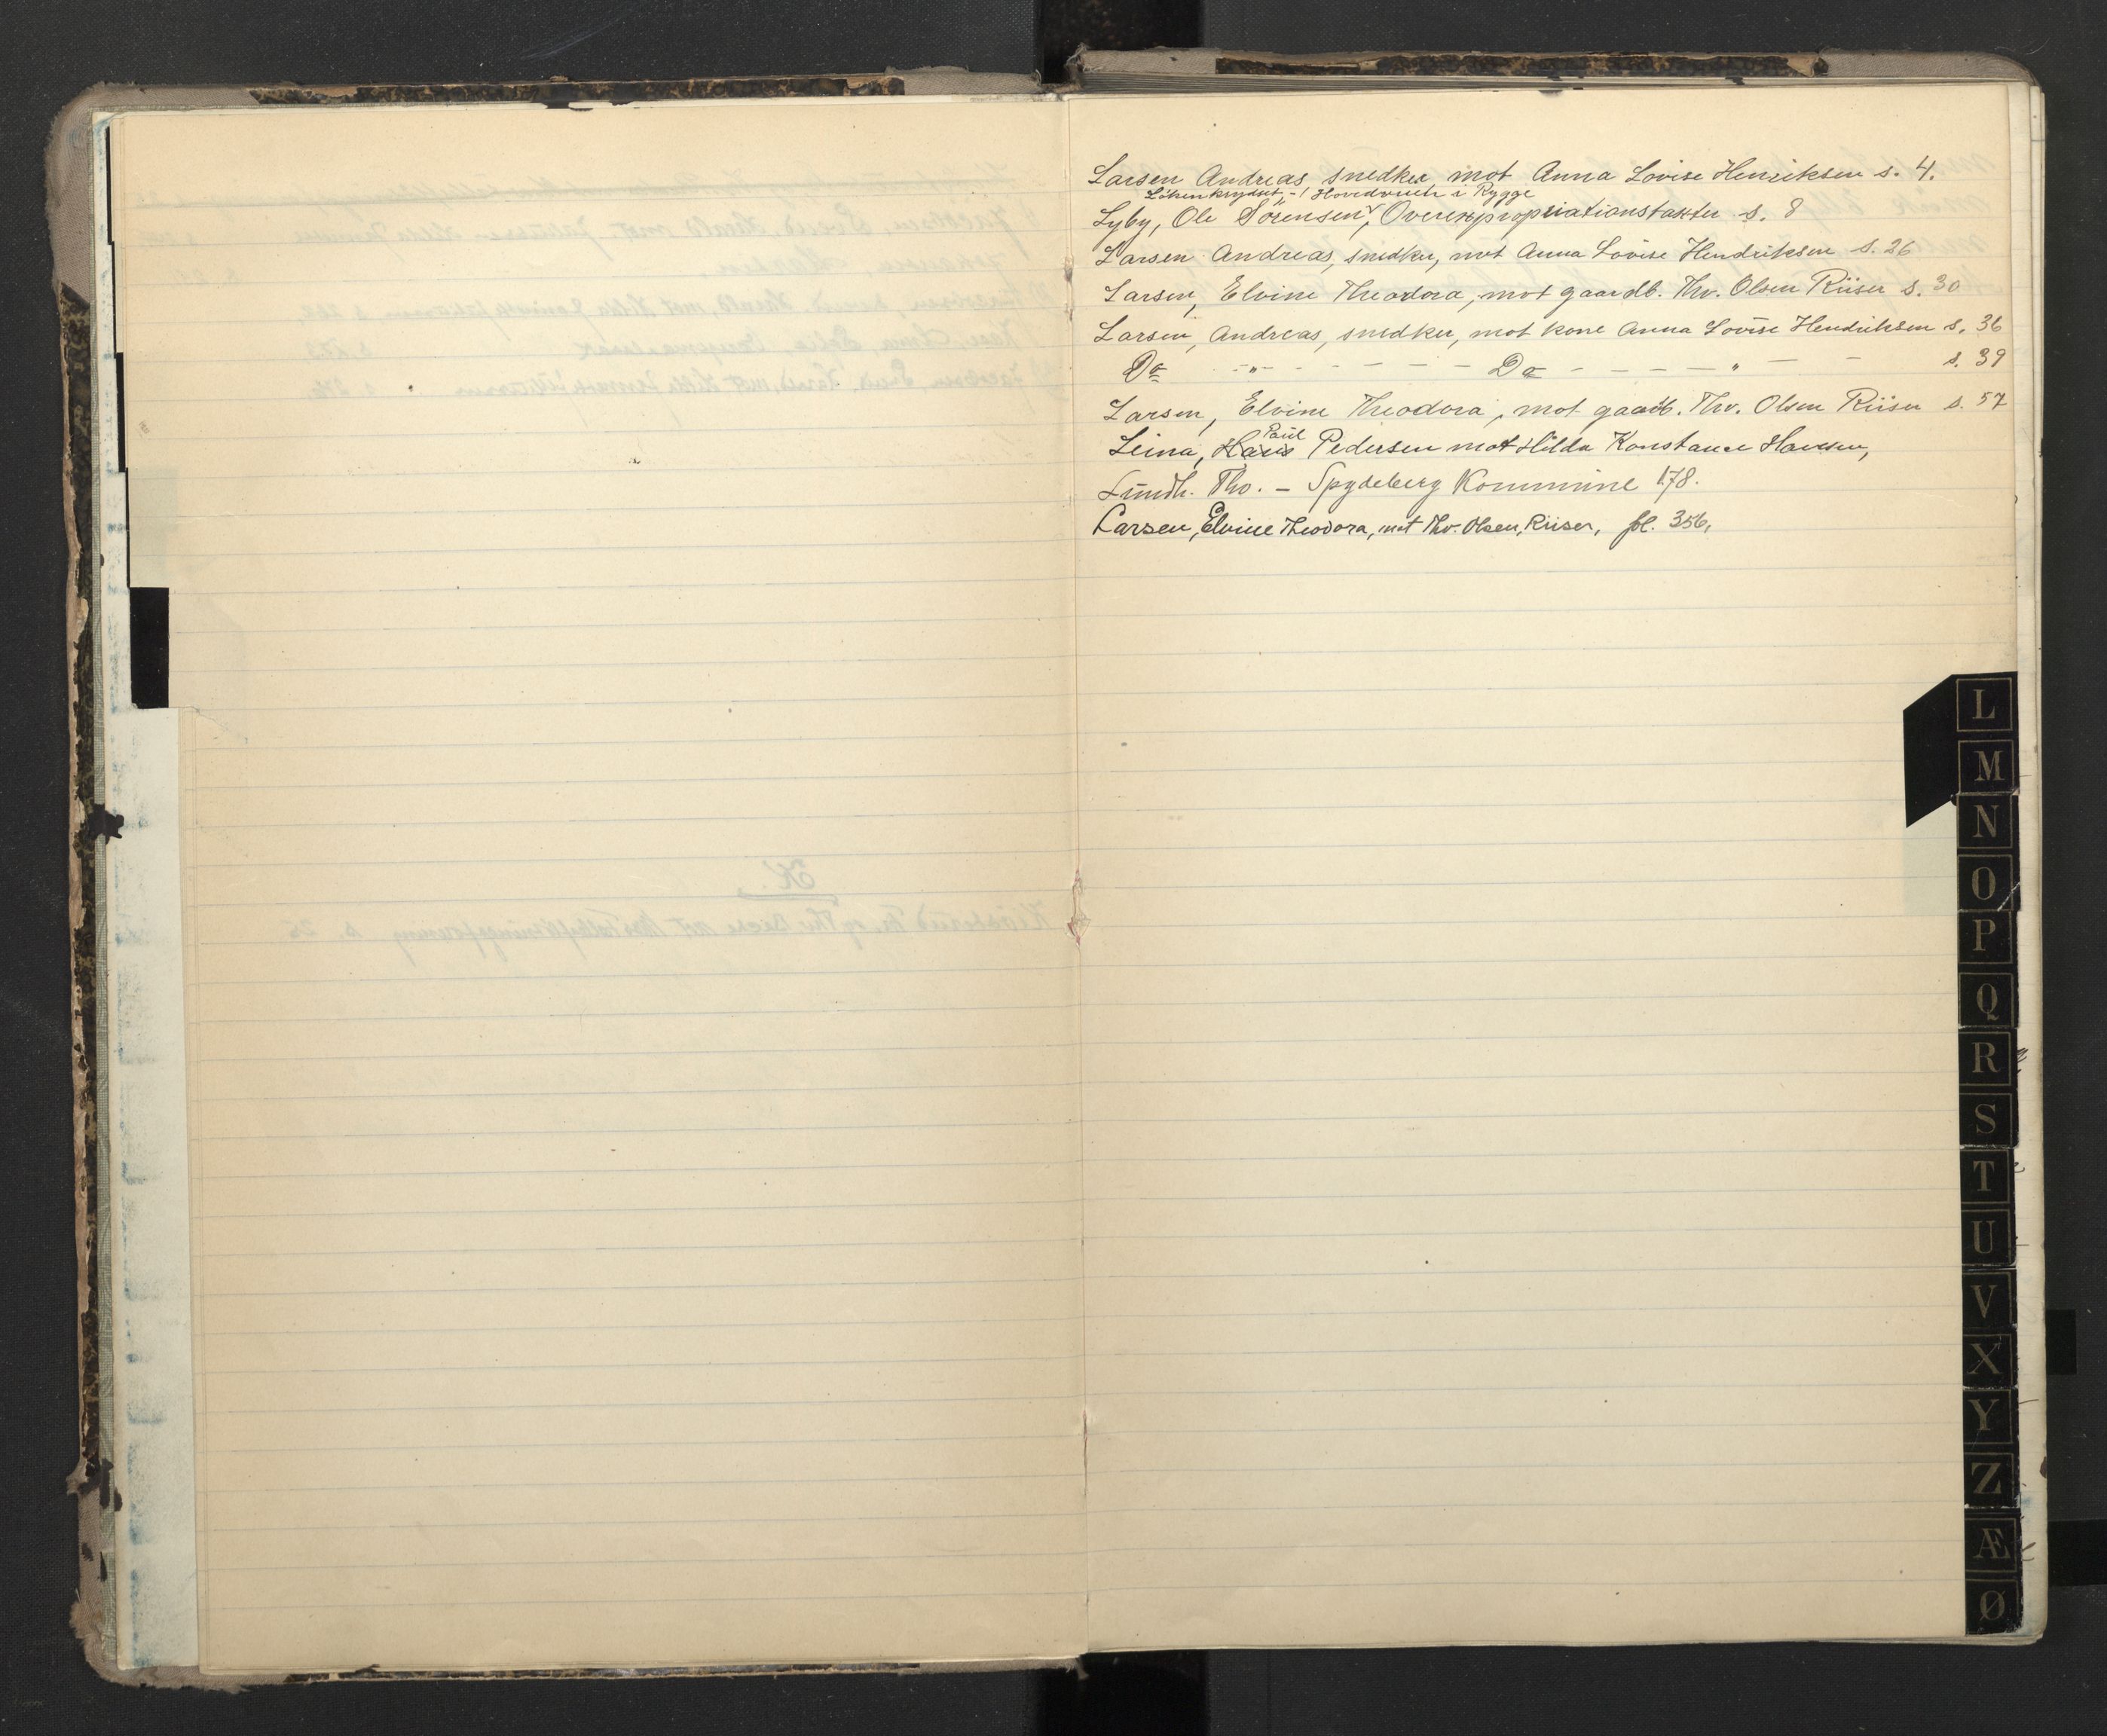 Larsen Andreas snedker mot Anna Lovise Henriksen s. 4.
Lökenkrydset - Hovedveien i Rygge
Lyby, Ole Sörensen, Overexpropriationstakster s. 8
Larsen Andreas, snedker, mot Anna Lovise Hendriksen s. 26
Larsen, Elvine Theodora, mot gaardb. Thv. Olsen Riiser s. 30
Larsen, Andreas, snedker, mot kone Anna Lovise Hendriksen s. 36
Do - " - - - - - - Do - - - - - " - - s. 39
Larsen, Elvine Theodora, mot gaardb. Thv. Olsen Riiser s. 57
Paul
Leina, Hans Pedersen mot Hilda Konstance Hansen,
Lundh. Thv. - Spydeberg Kommune 178.
Larsen, Elvine Theodora, mot Thv. Olsen, Riiser, fol. 356,
L
M
N
O
P
Q
R
S
T
U
V
X
Y
Z
Æ
Ø